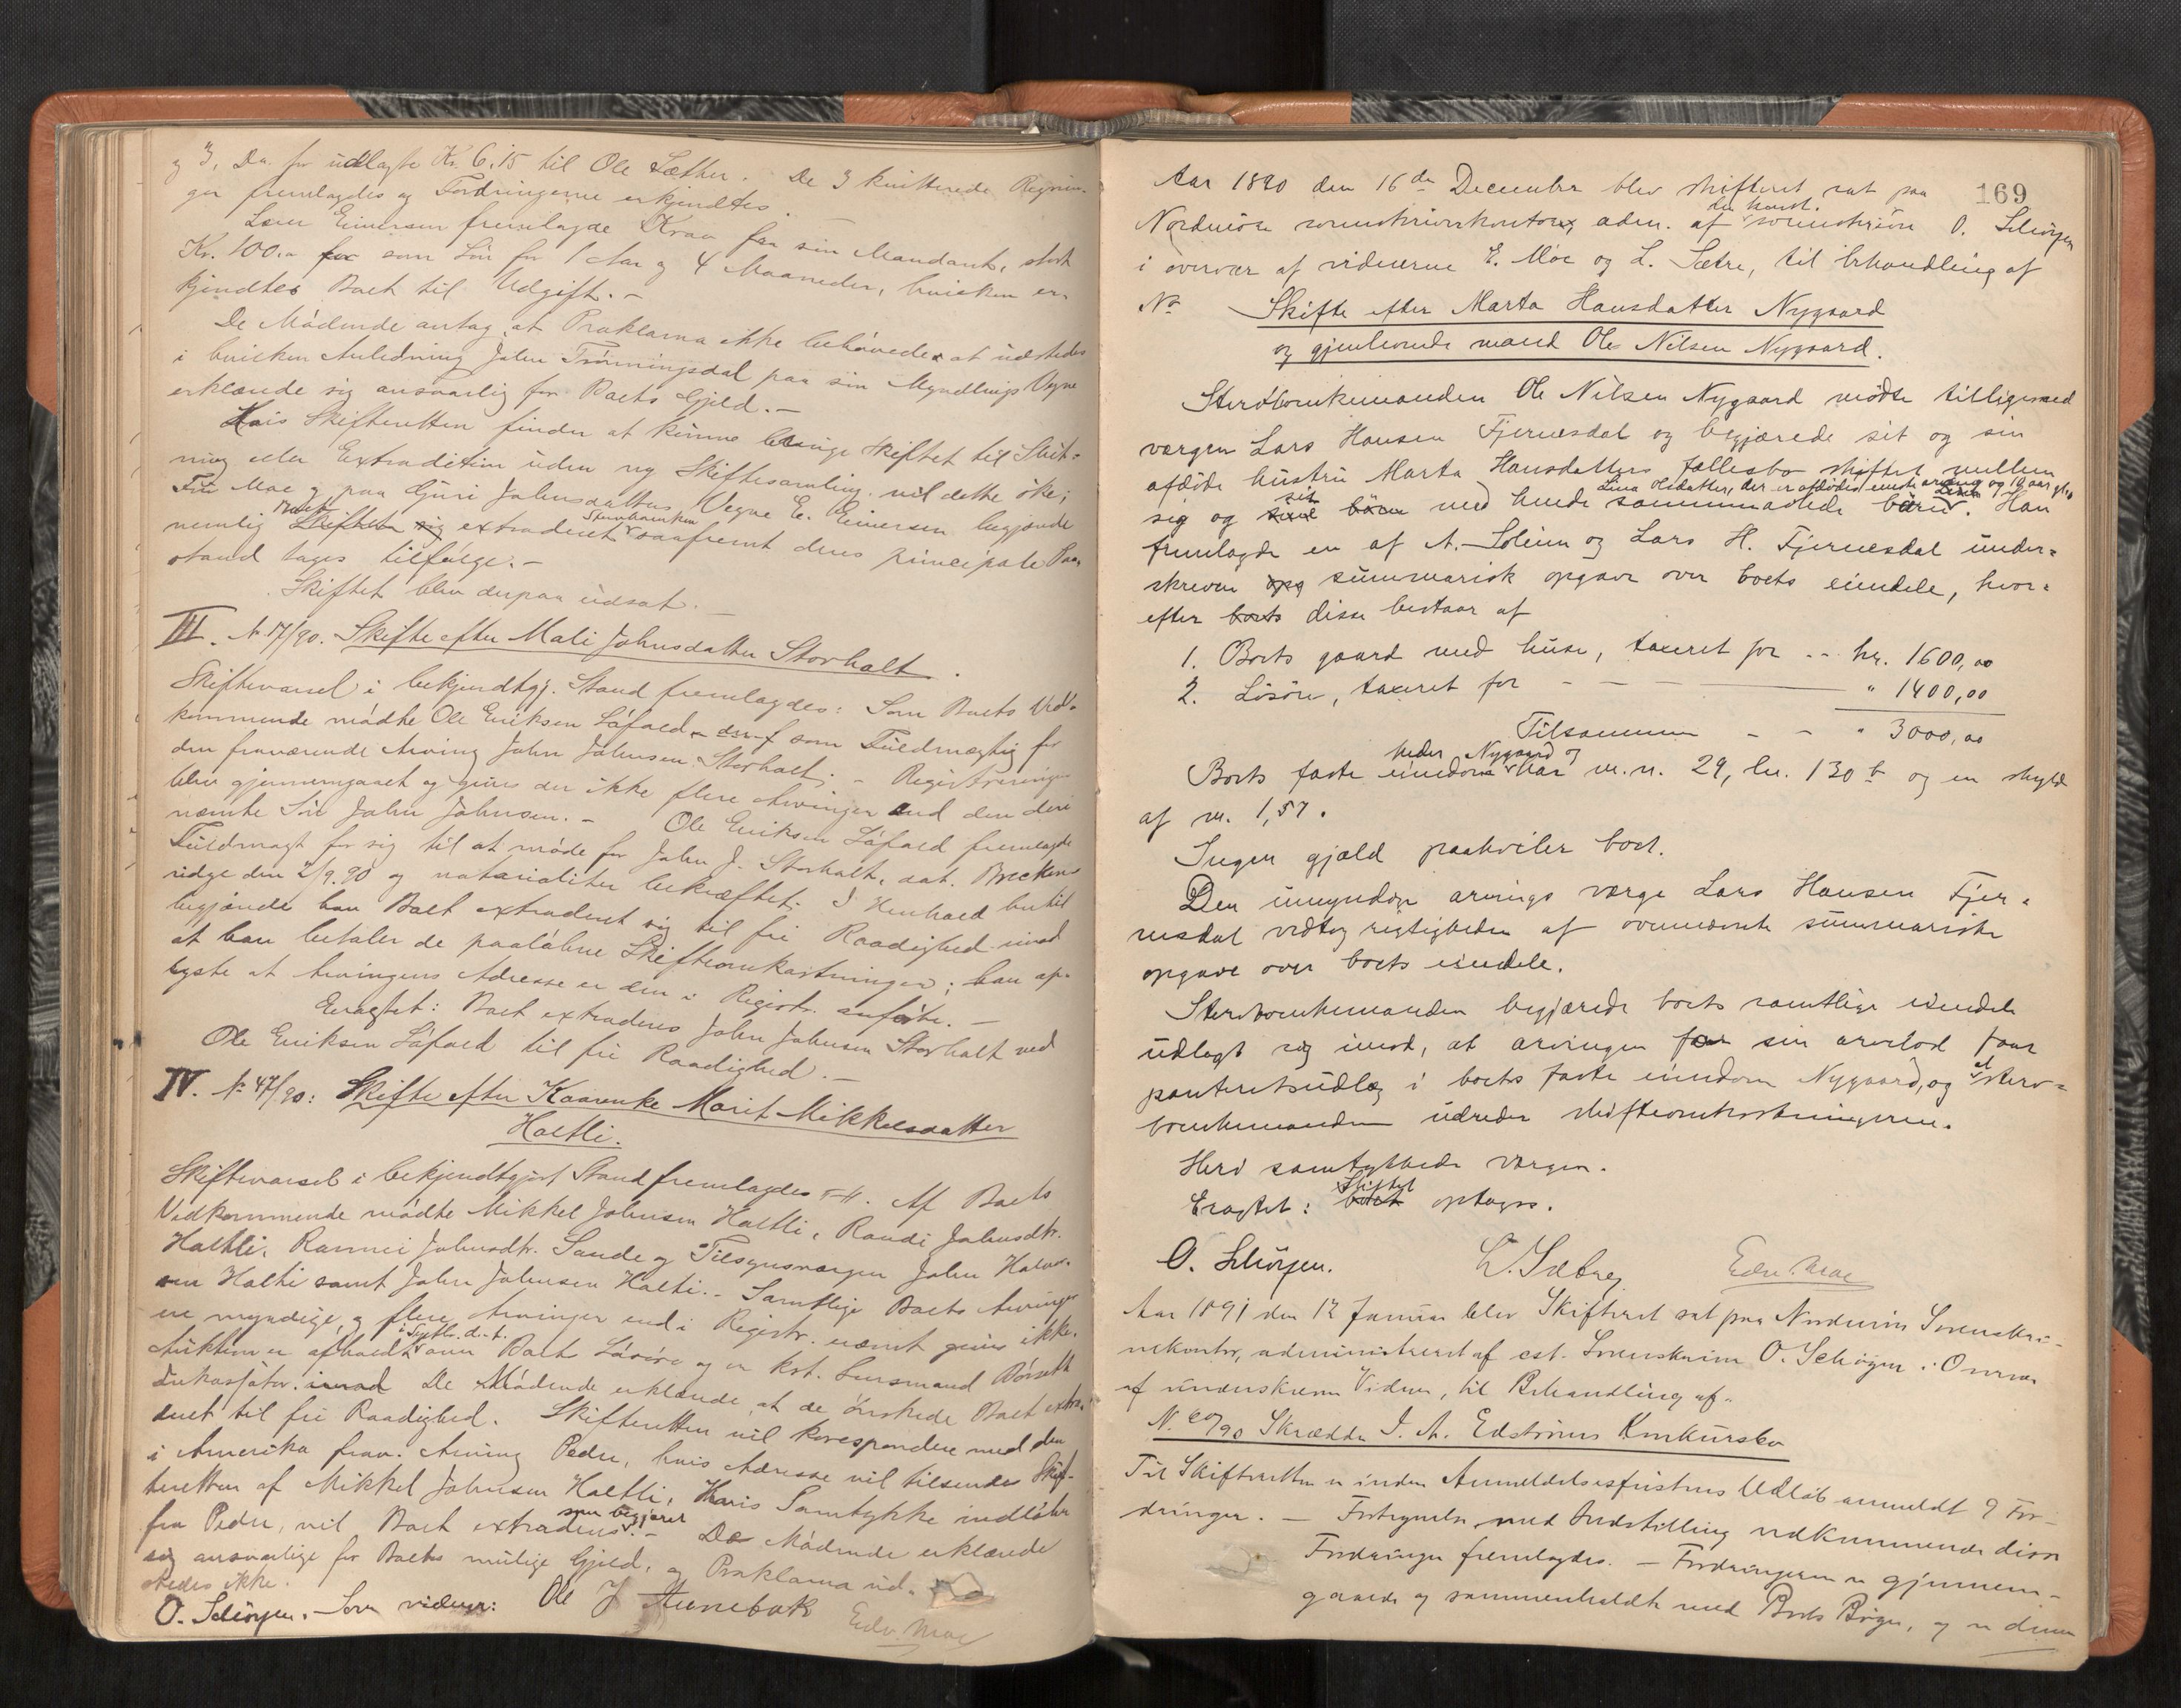 g 3, Do. for udlagte Kr. 6.15 til Ole Sæther. De 3 kvitterede Regnin-
ger fremlagdes og Fordringerne erkjendtes.
Einersen fremlagde Krav fra sin Mandant, stort
Kr. 100.- for som Løn for 1 Aar og 4 Maaneder, hvilken er-
kjendtes Boet til Udgift.-
De Mødende antog at Proklama ikke behøvedes at udstedes
i hvilken Anledning John Trønningsdal paa sin Myndlings Vegne
erklærede sig ansvarlig for Boets Gjeld.-
Hvis Skifteretten finder at kunne bringe Skiftet til Slut-
ning eller Extradition uden ny Skiftesamling vil dette ske;
Moe og paa Guri Johnsdatters Vegne E. Einersen begjærede
nemlig Boet Skiftet sig extraderet saafremt deres principale Paa-
stand tages tilfølge.-
Skiftet blev derpaa udsat.-
III. No 17/90. Skifte efter Mali Johnsdatter Storholt.
Skiftevarsel i bekjendtgj. Stand fremlagdes: Som Boets Ved-
kommende mødte Ole Eriksen Løfald som Fuldmægtig for
den fraværende Arving John Johnsen Storholt.- Registreringen
blev gjennemgaaet og gives der ikke flere Arvinger end den deri
nævnte Søn John Johnsen.- Ole Eriksen Løfald fremlagde
Fuldmagt for sig til at møde for John J. Storholt, dat. Brecken-
ridge den 2/9.90 og notarialiter bekræftet. I Henhold hertil
begjærede han Boet extraderet sig til fri Raadighed imod
at han betaler de paaløbne Skifteomkostninger; han op-
lyste at Arvingens Adresse er den i Registr. anførte.-
Eragtet: Boet extraderes John Johnsen Storholt ved
Ole Eriksen Løfald til fri Raadighed.-
IV. No 47/90: Skifte efter Kaarenke Marit Mikkelsdatter
Holtli.
Skiftevarsel i bekjendtgjort Stand fremlagdes. Af Boets
Vedkommende mødte Mikkel Johnsen Holtli, Randi Johnsdtr.
Holtli, Johnsdtr. Sande og Tilsynsværgen John Halvor-
sen Holtli samt John Johnsen Holtli.- Samtlige Boets Arvinger
ere myndige, og flere Arvinger end i Registr. nævnt gives ikke.
i Septbr. d. A.
Auktion er afholdt over Boets Løsøre og er kst. Lensmand Børseth
Inkassator. imod De Mødende erklærede, at de ønskede Boet extra-
deret til fri Raadighed. Skifteretten vil korespondere med den
i Amerika frav. Arving Peder, hvis Adresse vil tilsendes Skif-
teretten af Mikkel Johnsen Holtli. Hvis Samtykke indløber
som begjæret
fra Peder, vil Boet extraderes.- De Mødende erklærede
sig ansvarlige for Boets mulige Gjeld, og Proklama ud-
stedes ikke.
O. Schiøtz. Som vidner: Ole J Aunebak Edv. Moe
169
Aar 1890 den 16de December blev skifteret sat paa
den konst.
Nordmøre sorenskriverkontor, adm. af sorenskriver O.
i overvær af vidnerne E. Moe og L. Sætre, til behandling af
No Skifte efter Marta Hansdatter Nygaard
og gjenlevende mand Ole Nilsen Nygaard.
Stervboenkemanden Ole Nilsen Nygaard mødte tilligemed
værgen Lars Hansen Fjernesdal og begjærede sit og sin
afdøde hustru Marta Hansdatters fællesbo skiftet mellem
Lina Olsdatter, der er afdødes eneste arving og 10 aar gl.
sig og sit med hende sammenavlede barn. Han
fremlagde en af A. Soleim og Lars H. Fjernesdal under-
skreven opg summarisk opgave over boets eiendele, hvor-
efter boets disse bestaar af
1. Boets gaard med huse, taxeret for -- kr. 1600,00
2. Løsøre, taxeret for - - " 1400,00
Tilsammen - - " 3000,00
heder Nygaard og
Boets faste eiendom har m.n. 29, br. 130 b og en skyld
af m. 1,57.
Ingen gjæld paahviler boet.
Den umyndige arvings værge Lars Hansen Fjer-
nesdal vedtog rigtigheden af ovennævnte summariske
opgave over boets eiendele.
Stervboenkemanden begjærede boets samtlige eiendele
udlagt sig imod, at arvingen for sin arvelod faar
panteretsudlæg i boets faste eiendom Nygaard, og at sterv-
boenkemanden udreder skifteomkostningerne.
Heri samtykkede værgen.
Eragtet: Skiftet boet optages.
O. L. Sætre Edv. Moe
Aar 1891 den 12 Januar blev Skifteret sat paa Nordmøre Sorenskri-
verkontor, administreret af cst. Sorenskriver O. i Overvær
af underskrevne Vidner, til Behandling af.
N. 60/90 Skrædder I. A. Edstrøms Konkursbo
Til Skifteretten er inden Anmeldelsesfristens Udløb anmeldt 9 For-
dringer. - Fortegnelse med Indstilling vedkommende disse
Fordringer fremlagdes. - Fordringerne er gjennem-
gaaede og sammenholdt med Boets Bøger, og er denne